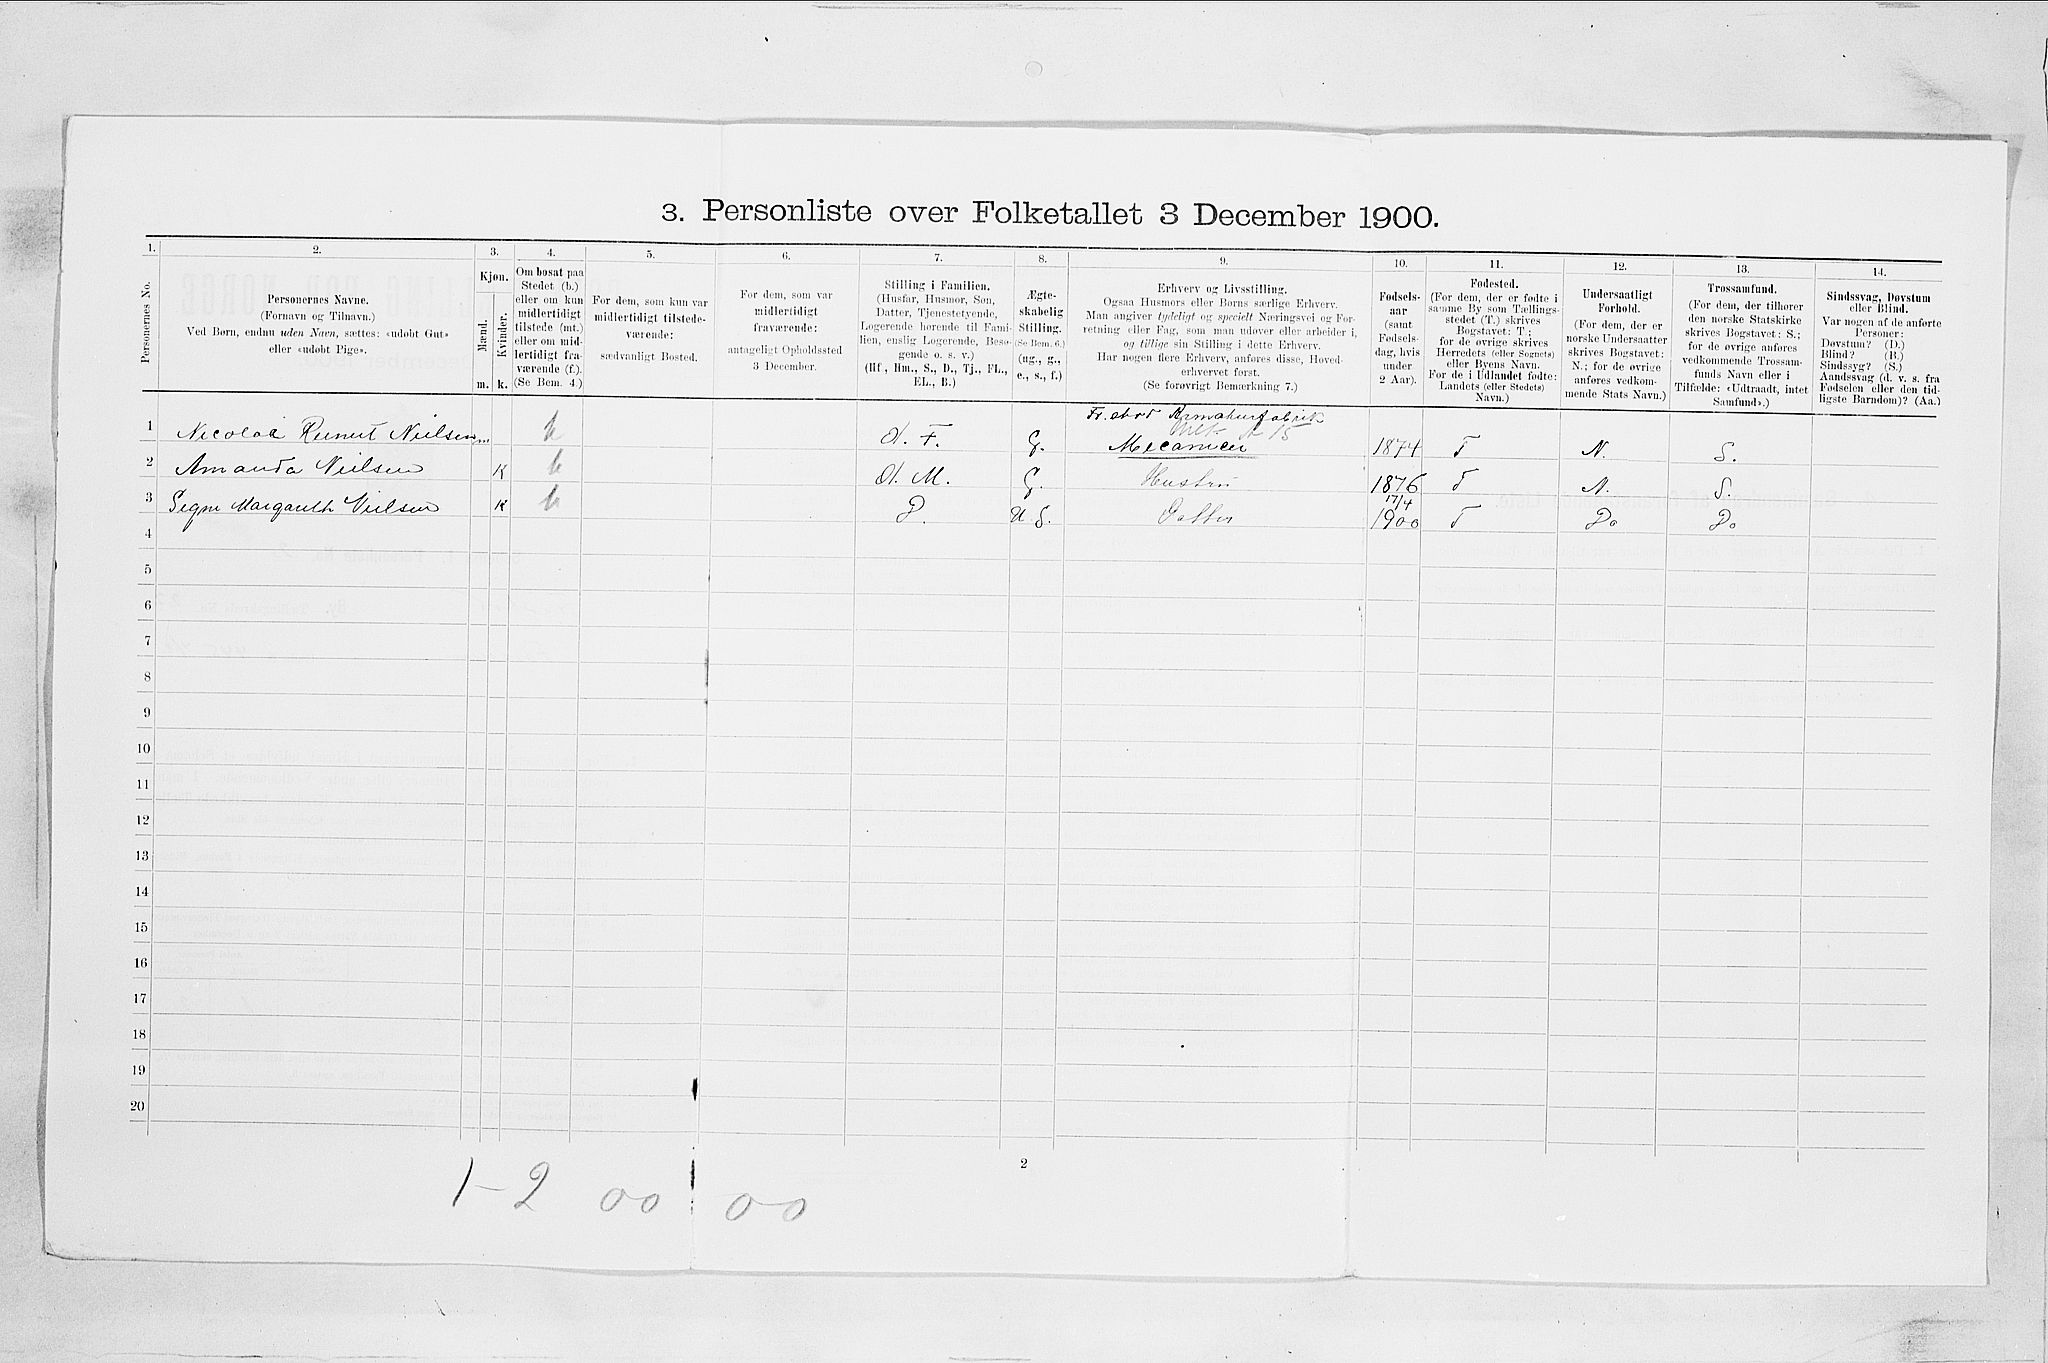 3. Personliste over Folketallet 3 December 1900.
1. 2. 3. 4. 5. 6. 7. 8. 9. 10. 11. 12. 13. 14.
Personernes No.
Personernes Navne.
(Fornavn og Tilnavn.)
Ved Børn, endnu uden Navn, sættes: «udøbt Gut»
eller «udøbt Pige».
Kjøn.
Mænd.
Kvinder.
m. k.
Om bosat paa
Stedet (b.)
eller om kun
midlertidigt
tilstede (mt.)
eller om mid-
lertidigt fra-
værende (f.).
(Se Bem. 4.)
For dem, som kun var
midlertidigt tilstede-
værende:
sædvanligt Bosted.
For dem, som var
midlertidigt
fraværende:
antageligt Opholdssted
3 December.
Stilling i Familien.
(Husfar, Husmor, Søn,
Datter, Tjenestetyende,
Logerende hørende til Fami-
lien, enslig Logerende, Besø-
gende o. s. v.)
(Hf., Hm., S., D., Tj., FL.,
EL., B.)
Ægte-
skabelig
Stilling.
(Se Bem. 6.)
(ug., g.,
e., s., f.)
Erhverv og Livsstilling.
Ogsaa Husmors eller Børns særlige Erhverv.
Man angiver tydeligt og specielt Næringsvei og For-
retning eller Fag, som man udøver eller arbeider i,
og tillige sin Stilling i dette Erhverv.
Har nogen flere Erhverv, anføres disse, Hoved-
erhvervet først.
(Se forøvrigt Bemærkning 7.)
Fødsels-
aar
(samt
Fødsels-
dag, hvis
under
2 Aar).
Fødested.
(For dem, der er fødte i
samme By som Tællings-
stedet (T.) skrives
Bogstavet: T.;
for de øvrige skrives
Herredets (eller Sognets)
eller Byens Navn.
For de i Udlandet fødte:
Landets (eller Stedets)
Navn.)
Undersaatligt
Forhold.
(For dem, der er
norske Undersaatter
skrives Bogstavet:
N.; for de øvrige
anføres vedkom-
mende Stats Navn.)
Trossamfund.
(For dem, der tilhører
den norske Statskirke
skrives Bogstavet: S.;
for de øvrige anføres
vedkommende Trossam-
funds Navn eller i
Tilfælde: «Udtraadt, intet
Samfund».)
Sindssvag, Døvstum
eller Blind.
Var nogen af de anførte
Personer:
Døvstum? (D.)
Blind? (B.)
Sindssyg? (S.)
Aandssvag (d. v. s. fra
Fødselen eller den tid-
ligste Barndom)? (Aa.)
Armaturfabrik
1 Nicolai Reinert Nielsen m b H. F. G. Mecaniker 1874 T N. S.
2 Amanda Nielsen K b H. M. G. Hustru 1876 T N. S.
17/4
3 Signe Margareth Nielsen K b D. U. G. Datter 1900 T Do Do
4
5
6
7
8
9
10
11
12
13
14
15
16
17
18
19
20
2
1-2 00 00